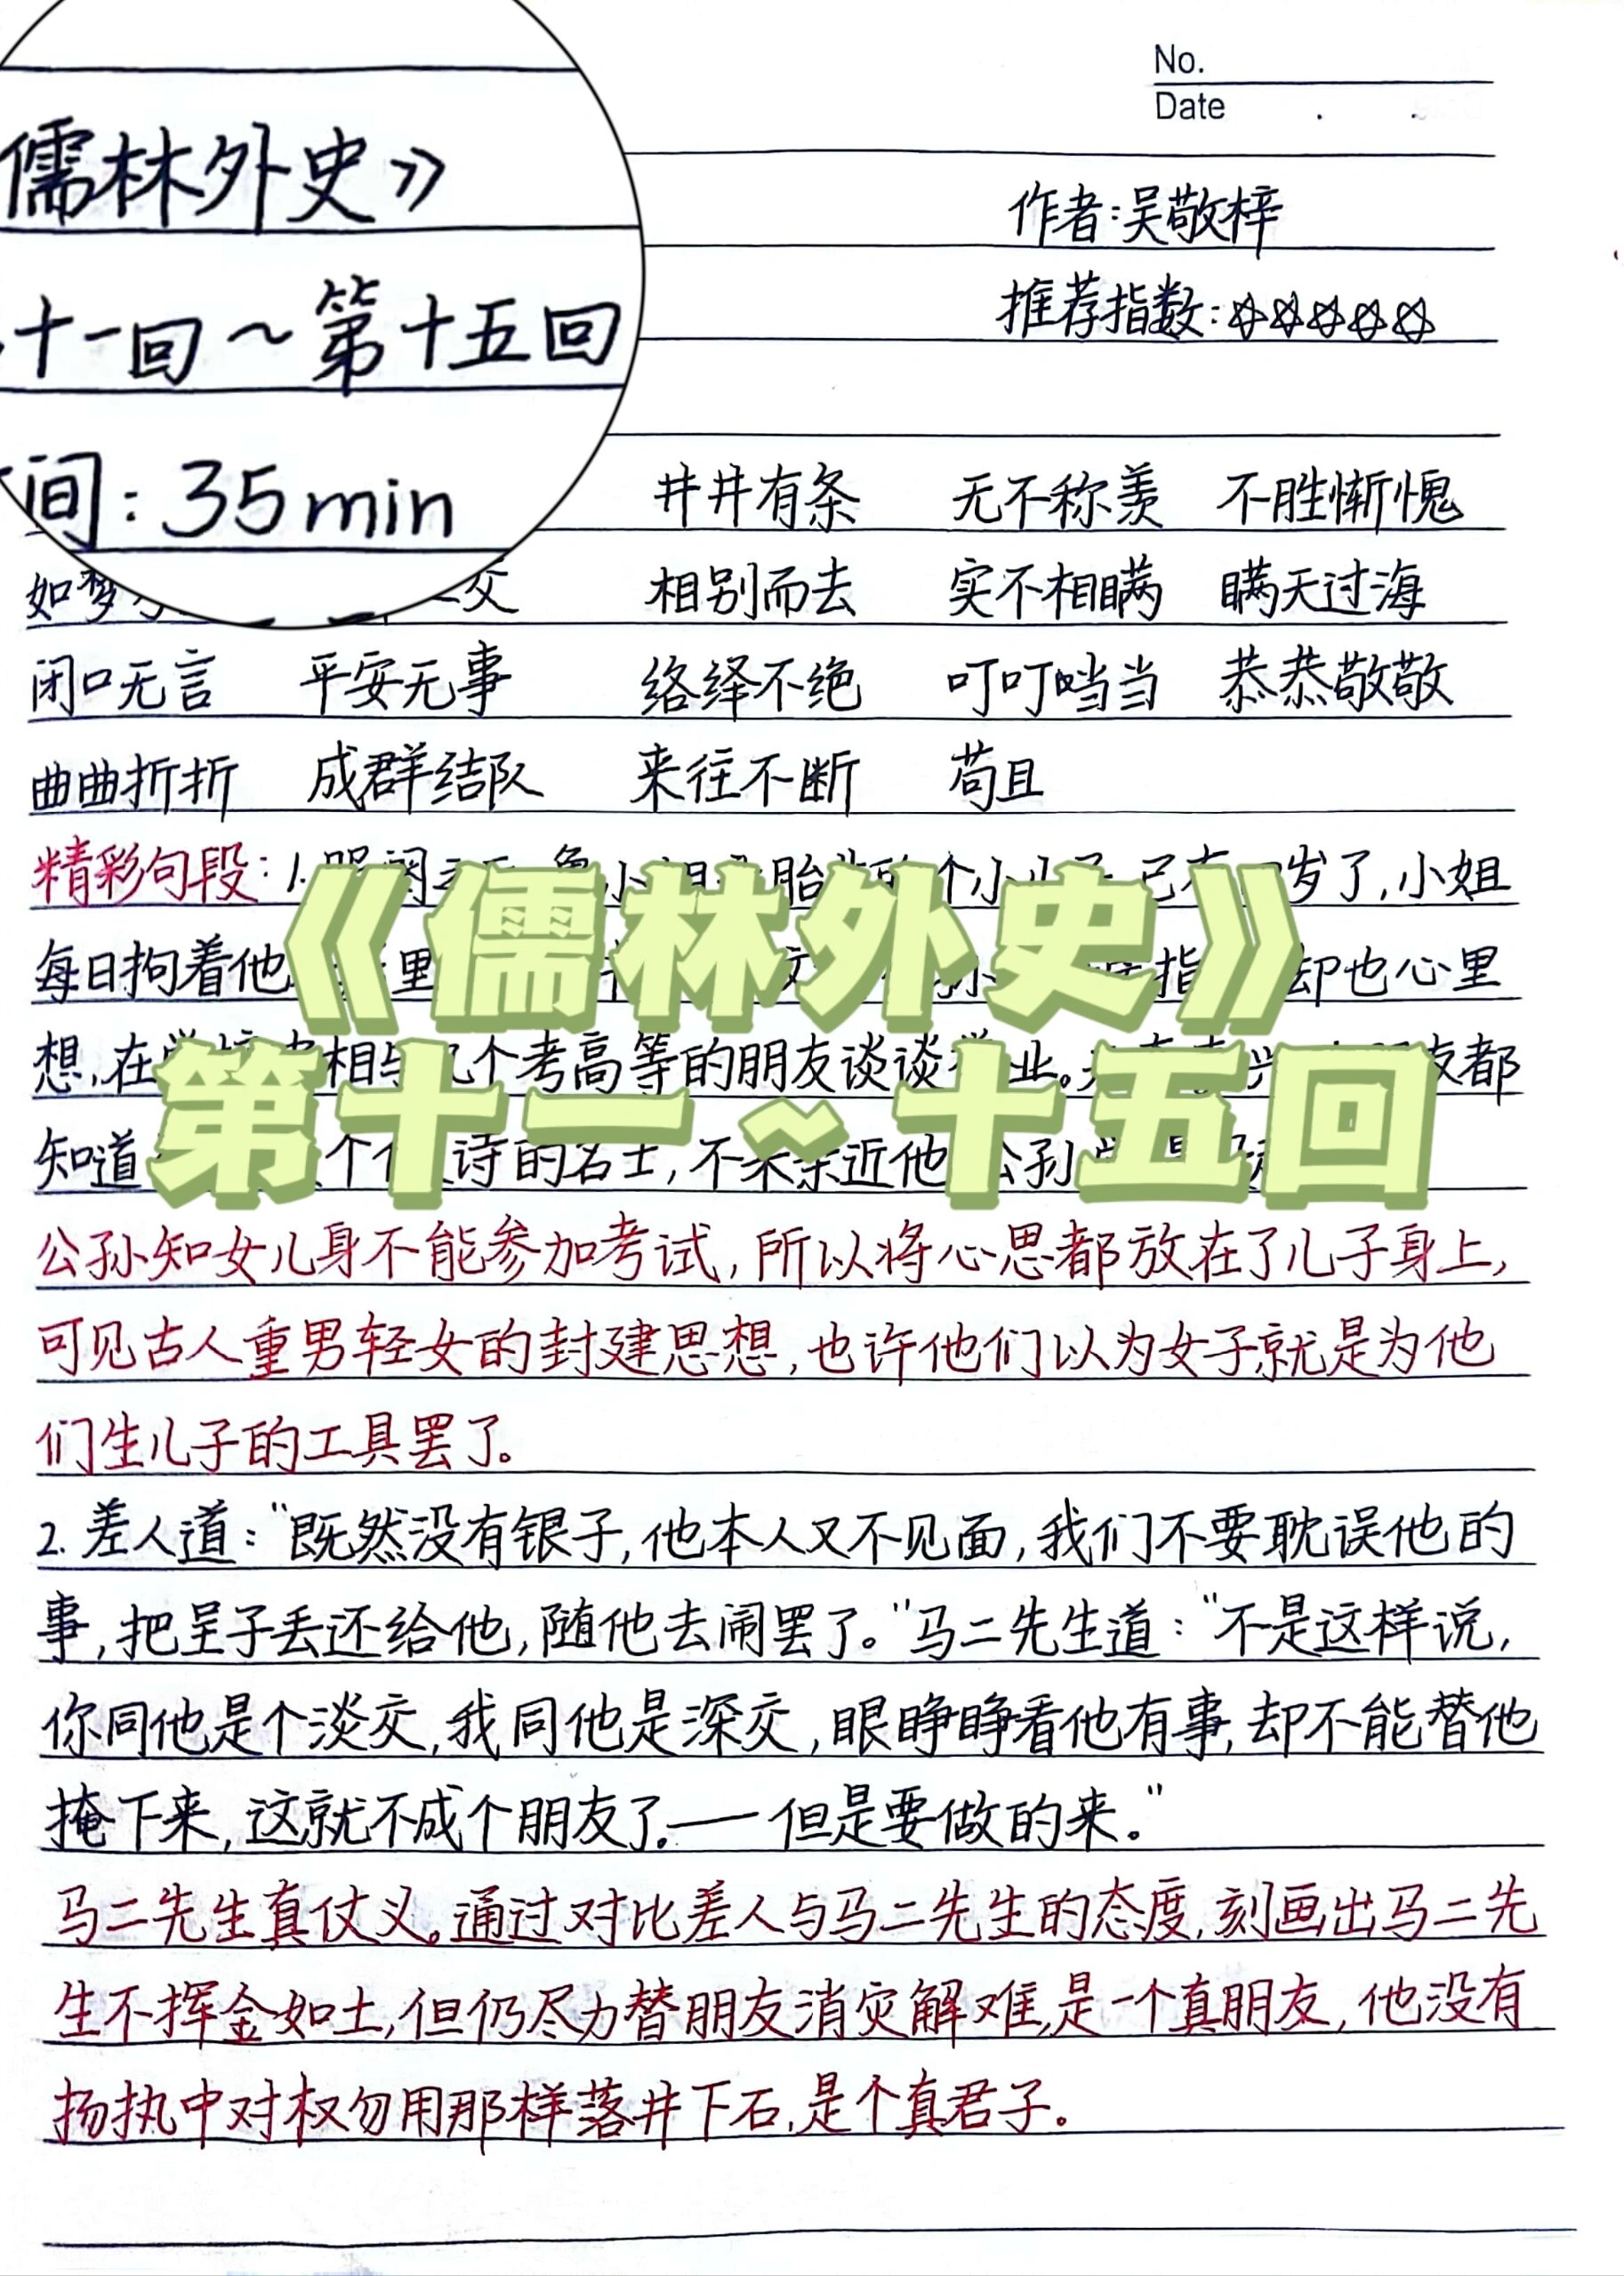 No.
Date
儒林外史》
十一回～第十五回
间：35min
作者：吴敬梓
推荐指数：☆☆☆☆☆
井井有条 无不称羡 不胜惭愧
如梦 交 相别而去 实不相瞒 瞒天过海
闭口无言 平安无事 络绎不绝 叮叮当当 恭恭敬敬
曲曲折折 成群结队 来往不断 苟且
精彩句段：1. 岁了，小姐
《儒林外史》
每日拘着他 里 指 却也心里
想，在 相与几个考高等的朋友谈谈举业。 友都
第十一～十五回
知道 个 诗的名士，不来亲近他 公孙
公孙知女儿身不能参加考试，所以将心思都放在了儿子身上，
可见古人重男轻女的封建思想，也许他们以为女子就是为他
们生儿子的工具罢了。
2.差人道：“既然没有银子，他本人又不见面，我们不要耽误他的
事，把呈子丢还给他，随他去闹罢了。”马二先生道：“不是这样说，
你同他是个淡交，我同他是深交，眼睁睁看他有事，却不能替他
掩下来，这就不成个朋友了。—但是要做的来。”
马二先生真仗义。通过对比差人与马二先生的态度，刻画出马二先
生不挥金如土，但仍尽力替朋友消灾解难，是一个真朋友，他没有
扬执中对权勿用那样落井下石，是个真君子。